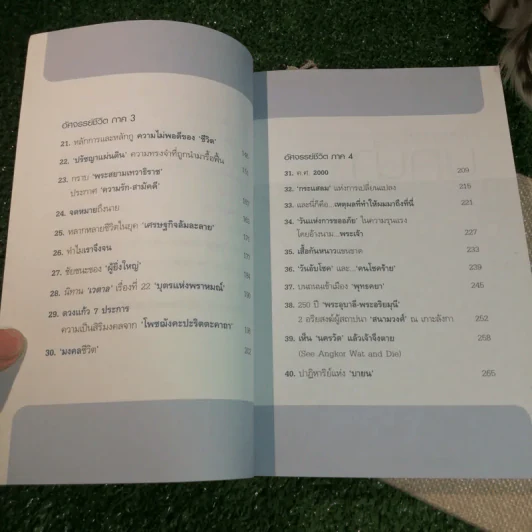 อัศจรรย์ชีวิต ภาค 3
21. หลักการและหลักกู ความไม่พอดีของ 'ชีวิต'
22. 'ปรัชญาแผ่นดิน' ความทรงจำที่ถูกนำมารื้อฟื้น
23. กราบ 'พระสยามเทวาธิราช'
ประกาศ 'ความรัก-สามัคคี'
24. จดหมายถึงนาย
25. หลากหลายชีวิตในยุค 'เศรษฐกิจล้มละลาย'
26. ทำไมเราจึงจน
27. ชัยชนะของ 'ผู้ยิ่งใหญ่'
28. นิทาน 'เวตาล' เรื่องที่ 22 'บุตรแห่งพราหมณ์'
29. ดวงแก้ว 7 ประการ
ความเป็นสิริมงคลจาก 'โพชฌังคะปะริตตะคาถา'
30. 'มงคลชีวิต'
อัศจรรย์ชีวิต ภาค 4
31. ค.ศ. 2000 209
32. 'กระแสลม' แห่งการเปลี่ยนแปลง 215
33. และนี่ก็คือ...เหตุผลที่ทำให้ผมมาถึงที่นี่ 221
34. 'วันแห่งการขออภัย' ในความรุนแรง
โดยอ้างนาม...พระเจ้า 227
35. เสื้อกันหนาวแขนขาด 233
36. 'วันอับโชค' และ...'คนโชคร้าย' 239
37. บนถนนเข้าเมือง 'พุทธคยา' 245
38. 250 ปี 'พระอุบาลี-พระอริยมุนี'
2 อริยสงฆ์ผู้สถาปนา 'สยามวงศ์' ณ เกาะลังกา 252
39. เห็น 'นครวัด' แล้วเจ้าจึงตาย 258
(See Angkor Wat and Die)
40. ปาฏิหาริย์แห่ง 'บายน' 265